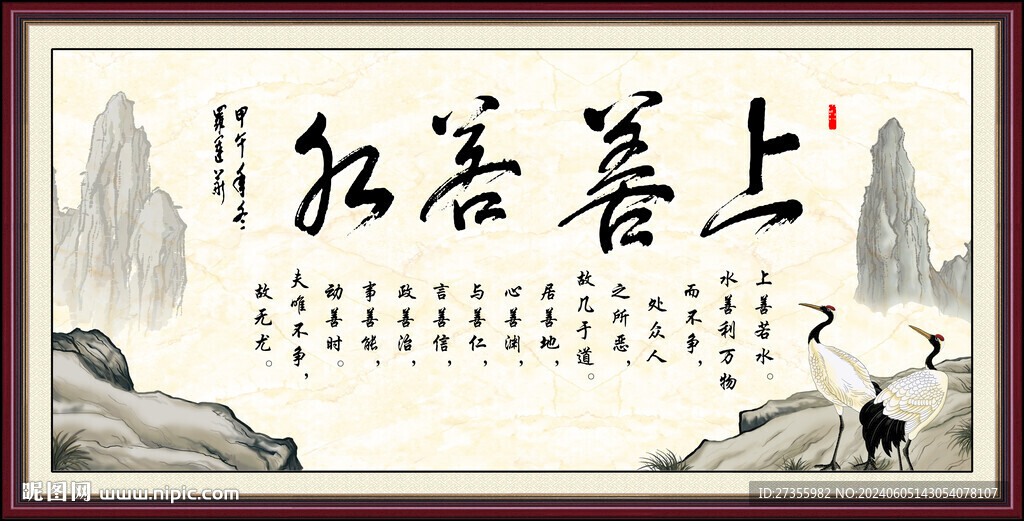 上善若水
上善若水。
水善利万物
而不争，
处众人
之所恶，
故几于道。
居善地，
心善渊，
与善仁，
言善信，
政善治，
事善能，
动善时。
夫唯不争，
故无尤。
甲午年冬
昵图网 www.nipic.com
ID:27355982 NO:20240605143054078107